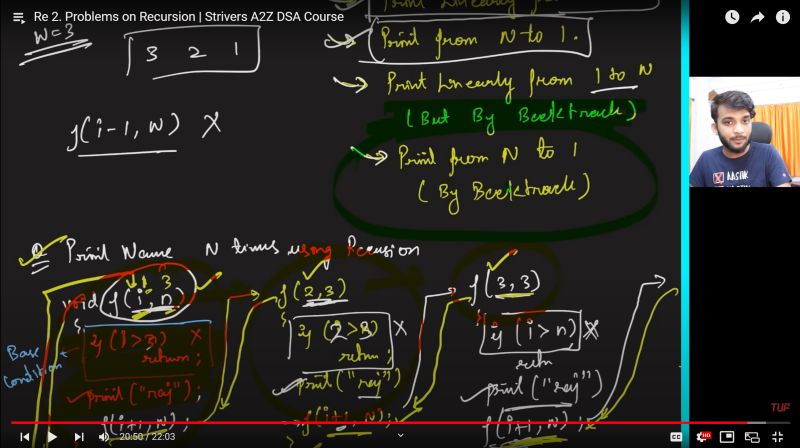 Re 2. Problems on Recursion | Strivers A2Z DSA Course
Print Linearly from
N=3
3 2 1
Print from N to 1.
Print Linearly from 1 to N
(But By Backtrack)
f(i-1, N) X
Print from N to 1
(By Backtrack)
Q Print Name N times using Recursion
1 3
void f(i, n)
{
if (1>3) X
return;
print("raj");
f(i+1, N);
Base
Condition
f(2,3)
{
if (2>3) X
return;
print("raj")
f(i+1, N);
f(3,3)
{
if (i>n) X
retn
print("raj")
f(i+1, N);
TUF
20:50 / 22:03
HD